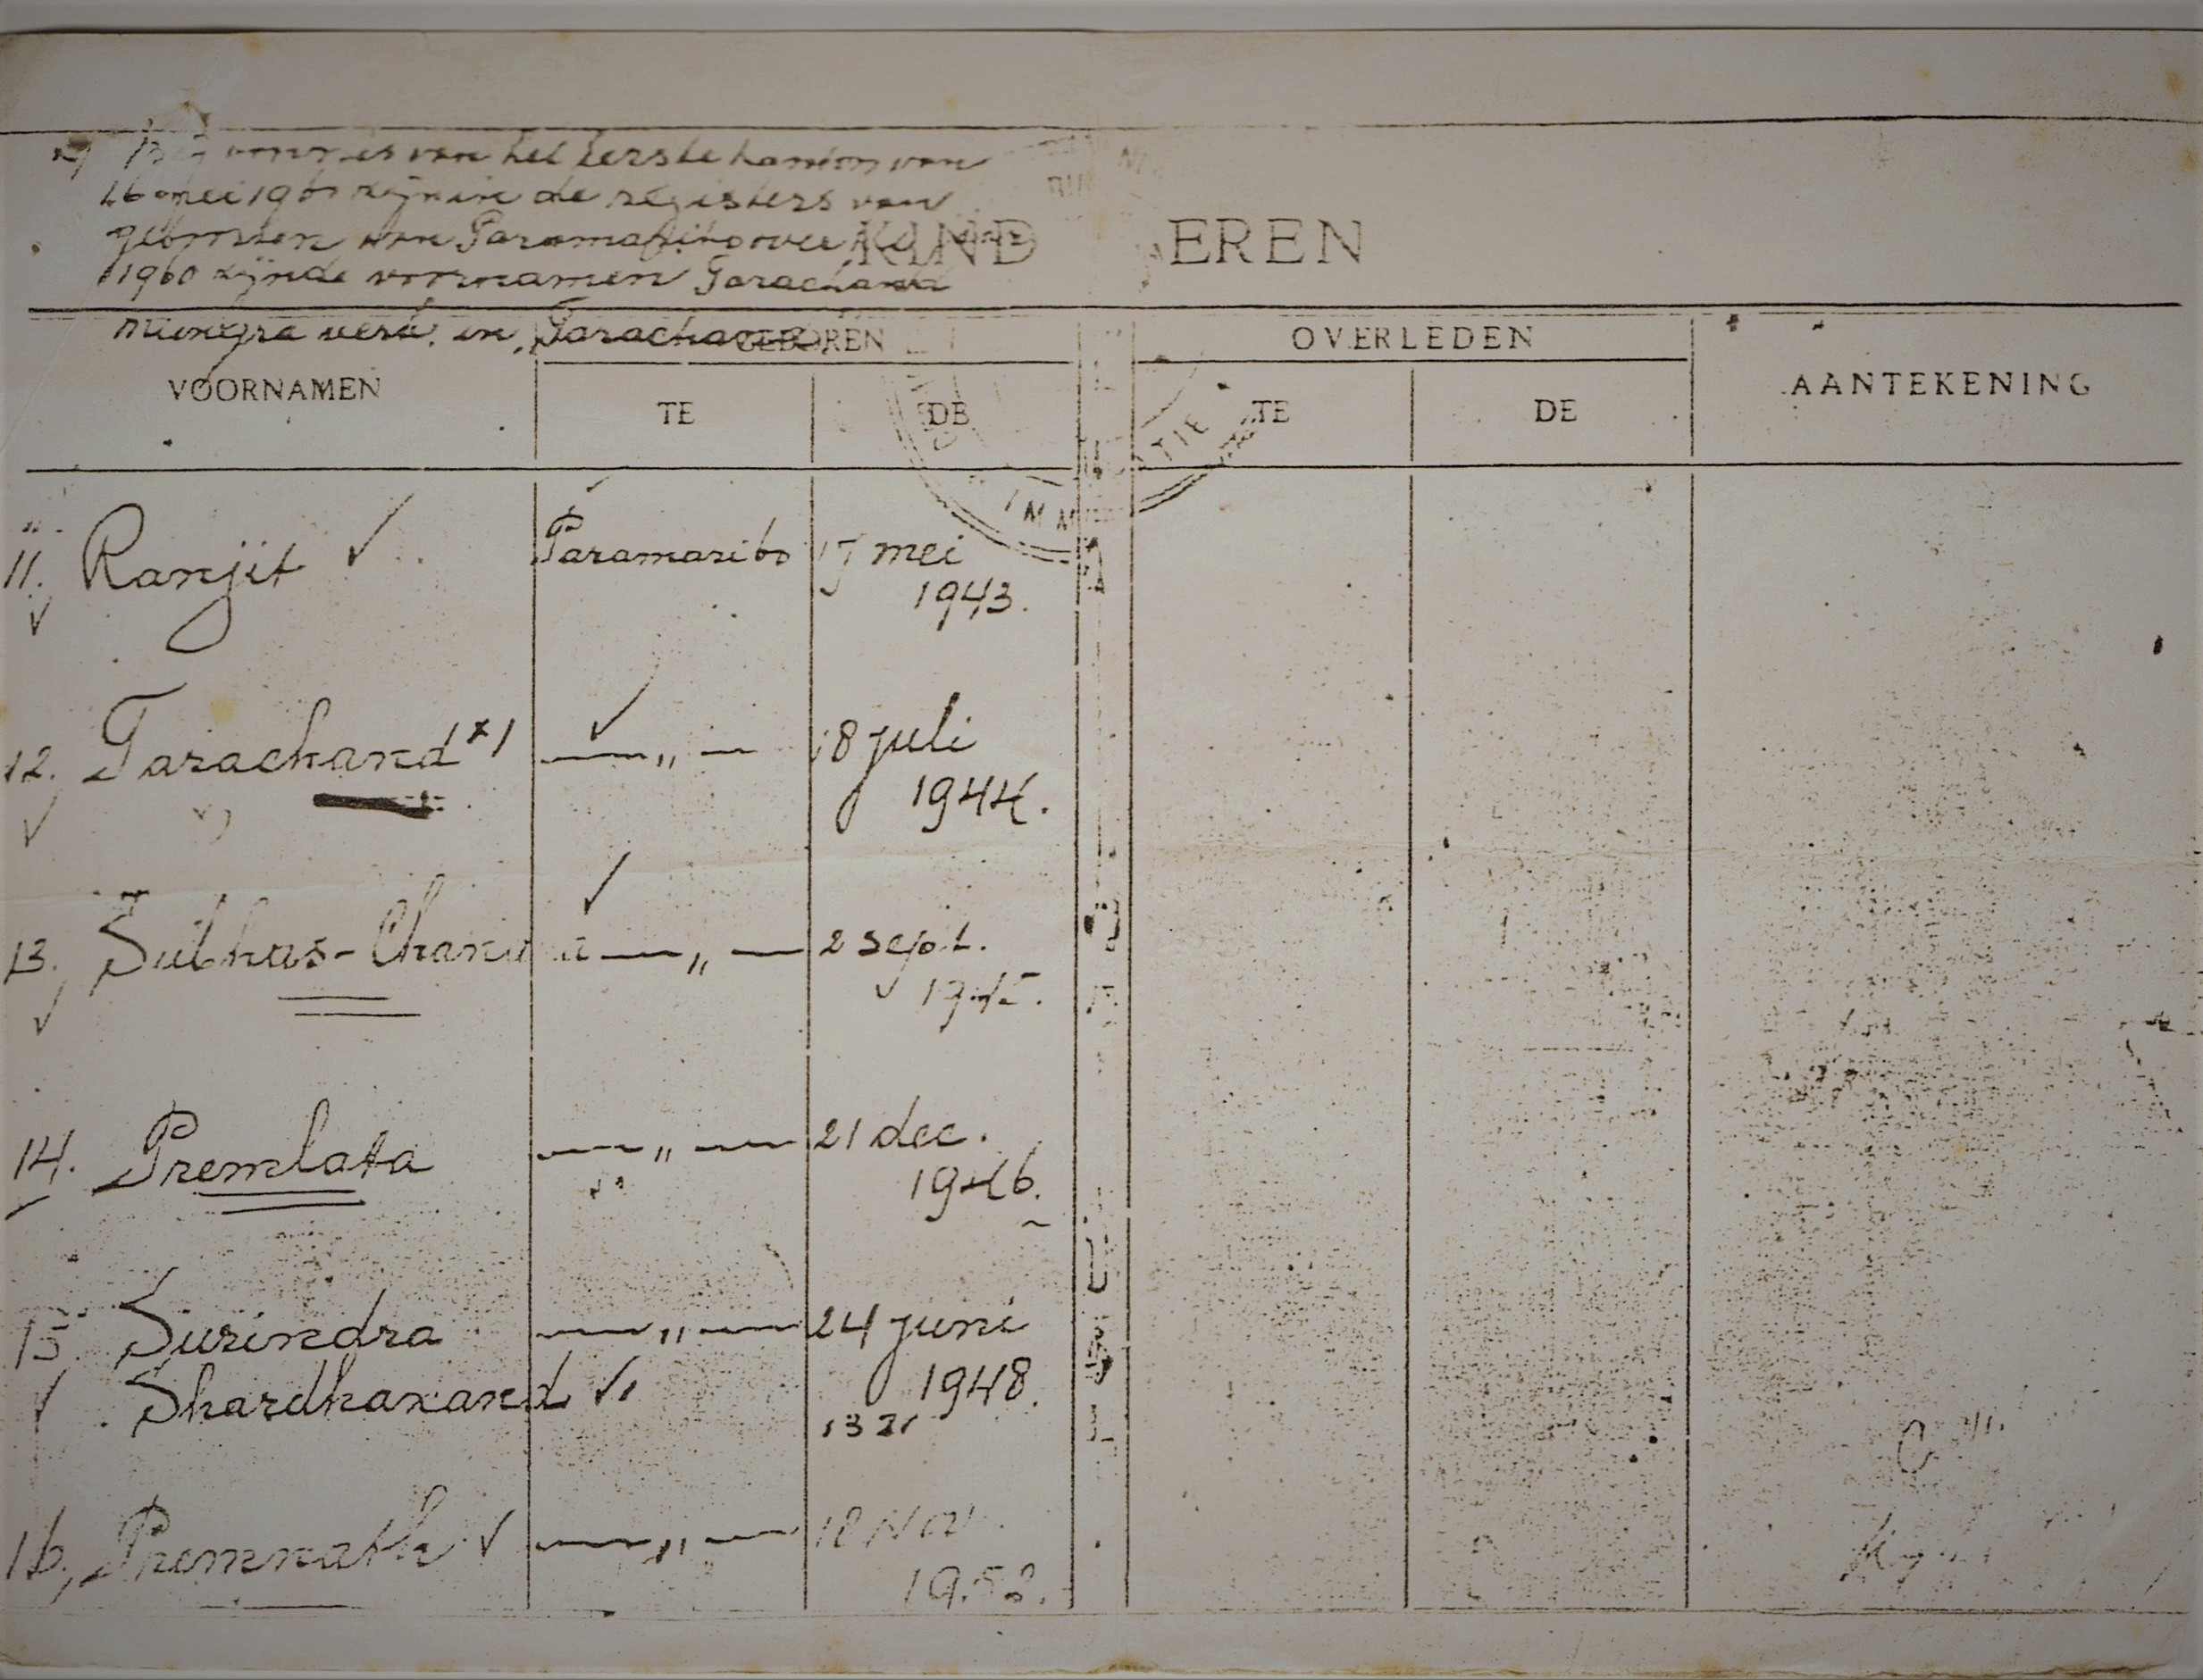 van het eerste kanton van
16 mei 1960 zijn in de registers van
geboorten van Paramaribo over
1960 zijnde voornamen Tarachand
KINDEREN
in Tarachand
GEBOREN OVERLEDEN
VOORNAMEN TE DE TE DE AANTEKENING
IMM TIE
11. Ranjit Paramaribo 17 mei
1943.
12. Tarachand *) — „ — 18 juli
1944.
13. Subhas-Chandra — „ — 2 sept.
1945.
14. Premlata — „ — 21 dec.
1946.
15. Surindra — „ — 24 juni
Shardhanand 1948.
16. Premnath — „ — 18 Nov.